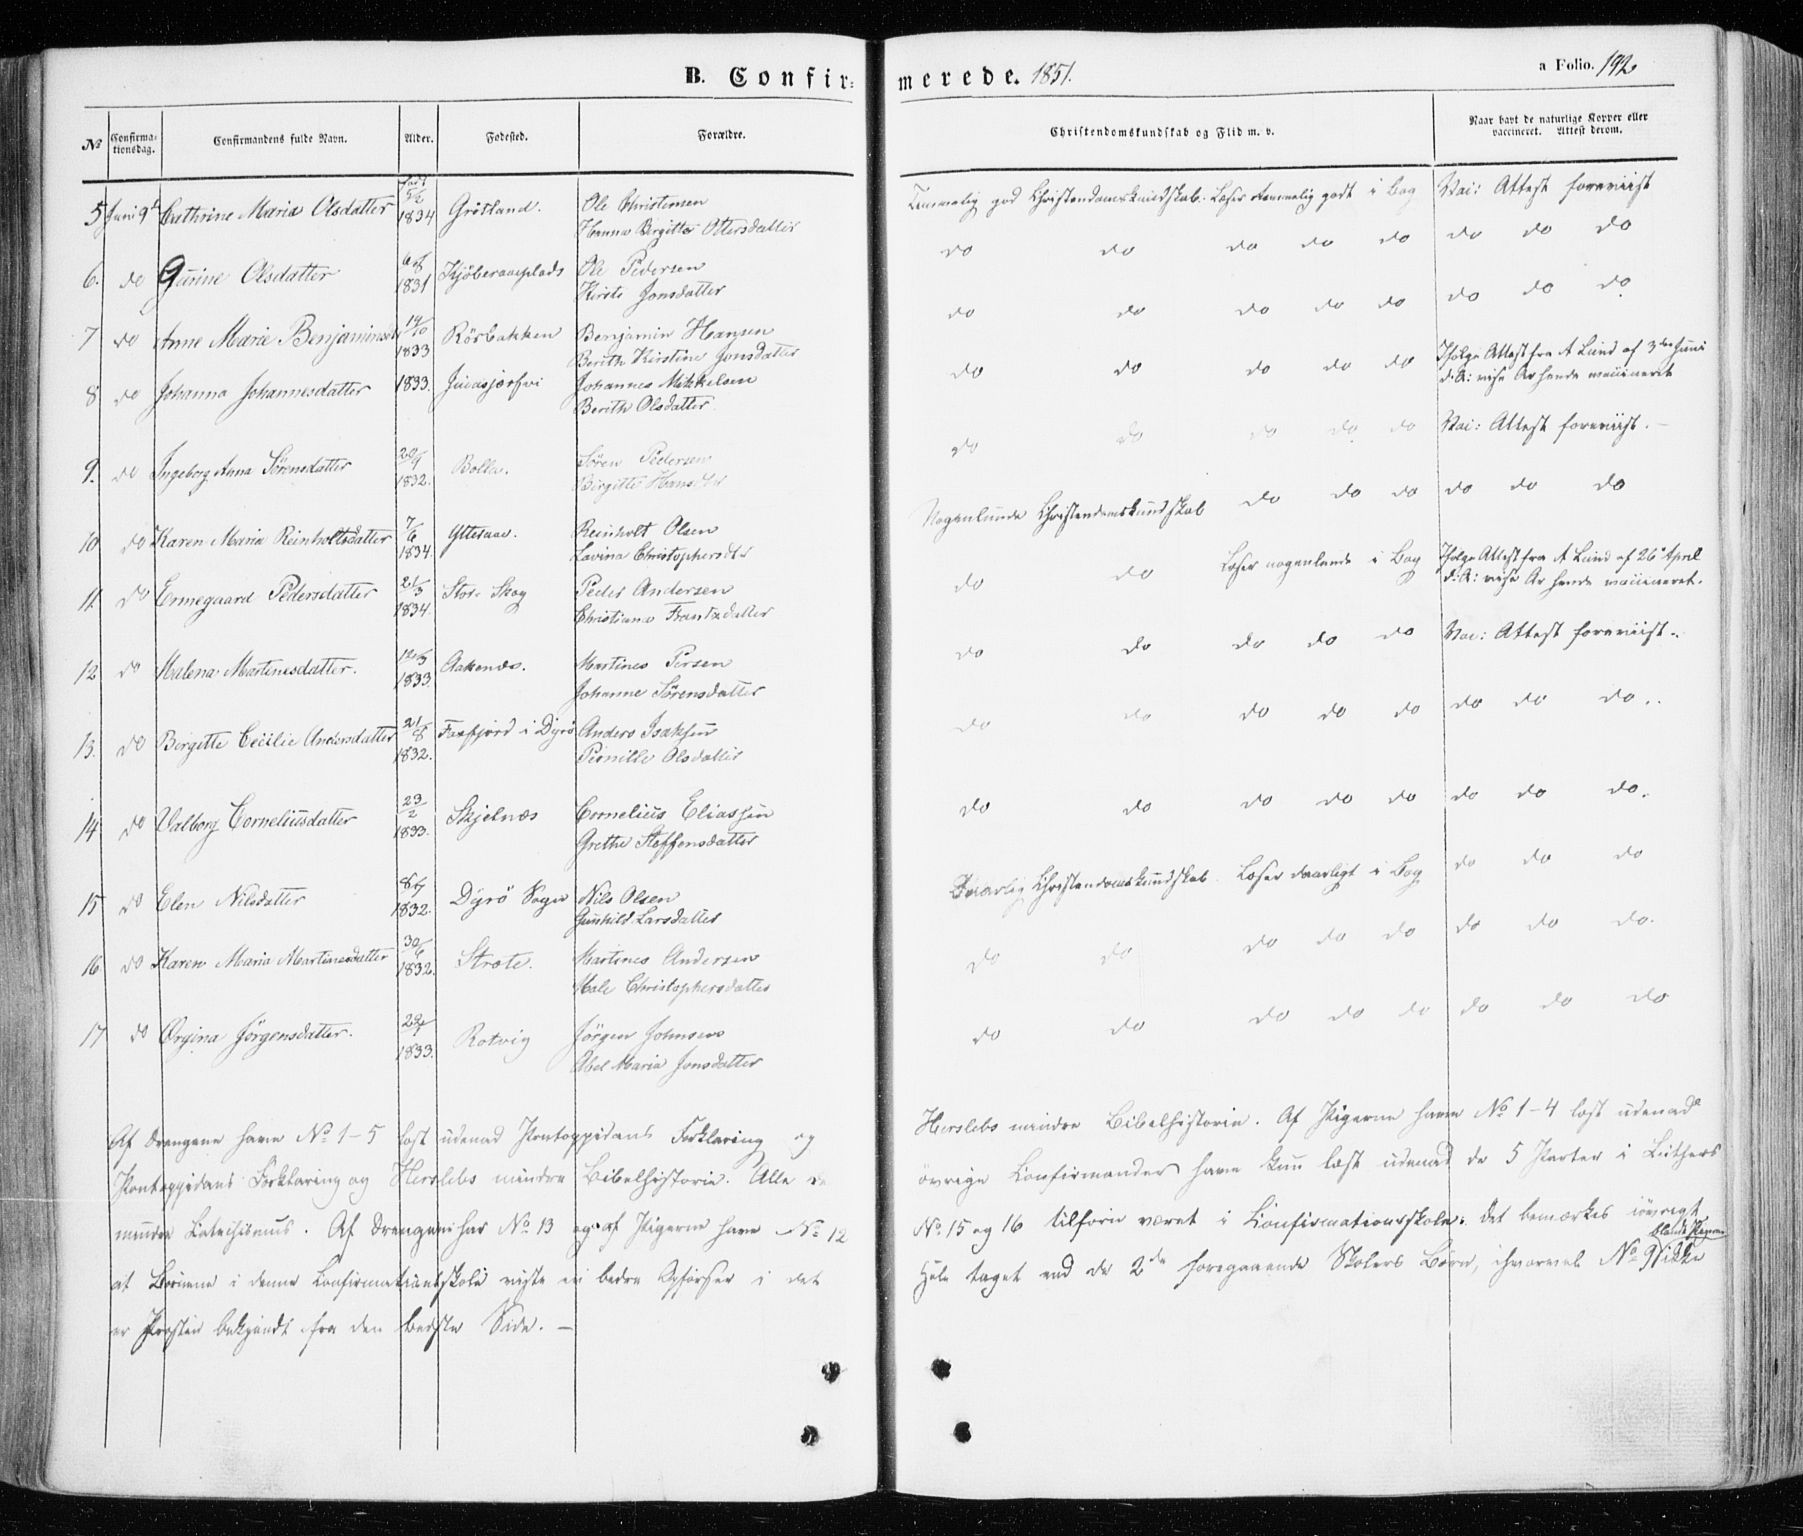 B. Confir- merede. 1851.
a Folio. 192
No Confirmationsdag. Confirmandens fulde Navn. Alder. Fødested. Forældre. Christendomskundskab og Flid m. v. Naar havt de naturlige Kopper eller vaccineret. Attest derom.
5 Juni 9de Cathrine Maria Olsdatter født 5/2 1834 Grötland. Ole Christensen Temmelig god Christendomskundskab. Læser temmelig godt i Bog Vac: Attest foreviist
Hanna Birgitta Ottersdatter
6. do Gurine Olsdatter 1831 Ole Pedersen do do do do do do do do
Kirsti Jonsdatter
7 do Anne Marie Benjaminsd 14/10 1833 Rösbakken Benjamin Hansen do do do do do do do do
Berith Kirstine Jonsdatter
8 do Johanna Johannesdatter 1833. Johannes Mikkelsen do do do do do Ifølge Attest fra A Lund af 3die Juni
Berith Olsdatter
9. do Ingeborg Anna Sörensdatter 1832. Bolla. Sören Pedersen do do do do do Vac: Attest foreviist.
Birgitte Hansdtr
10 do Karen Maria Reinholtsdatter 7/6 1834. Ytteraa. Reinholt Olsen Nogenlunde Christendomskundskab do do do do do do
Lavina Christophersdtr
11. do Ermegaard Pedersdatter 21/3 1834. Store Skog Peder Andersen do do Læser nogenlunde i Bog Ifølge Attest fra A Lund af 26e April
Christiana Frantzdatter
12 do Malena Martinusdatter. 1833. Aakenæs. Martines Persen do do do do do Vac: Attest foreviist.
Johanne Sörensdatter
13. do Birgitte Cecilie Andersdatter 21/8 1832. i Dyrö Anders Isaksen do do do do do do do do.
Pernille Olsdatter
14 do Valborg Corneliusdatter 23/2 1833. Skjelnæs Cornelius Eliassen do do do do do do do do.
Grethe Steffensdatter
15 do Elen Nilsdatter 1832. Dyrö Sogn Nils Olsen Daarlig Christendomskundskab. Læser daarligt i Bog do do do
Gunhild Larsdatter
16 do Karen Maria Martinesdatter 30/6 1832. Strøte. Martines Andersen do do do do do do do do.
Male Christophersdatter
17 do Ørgina Jörgensdatter. 1833. Rotvig Jörgen Johnsen do do do do do do do do
Abel Maria Jonsdatter
Af Drengene have No 1-5 læst udenad Pontoppidans Forklaring og Herslebs mindre Bibelhistorie. Af Pigerne have No 1-4 læst udenad
Pontoppidans Forklaring og Herslebs mindre Bibelhistorie. Alle de övrige Confirmander have kun læst udenad de 5 Parter i Luthers
mindre Catechismus. Af Drengene har No 13 og af Pigerne have No 12 No 15 og 16 tilforn været i Confirmationsskole. Det bemærkes iövrigt
at Börnene i denne Confirmationsskole viste en bedre Opförsel i det Hele taget end de 2de foregaaende Skolers Börn, ihvorvel No 9 blandt Pigerne ikke
er Præsten bekjendt fra den bedste Side. –